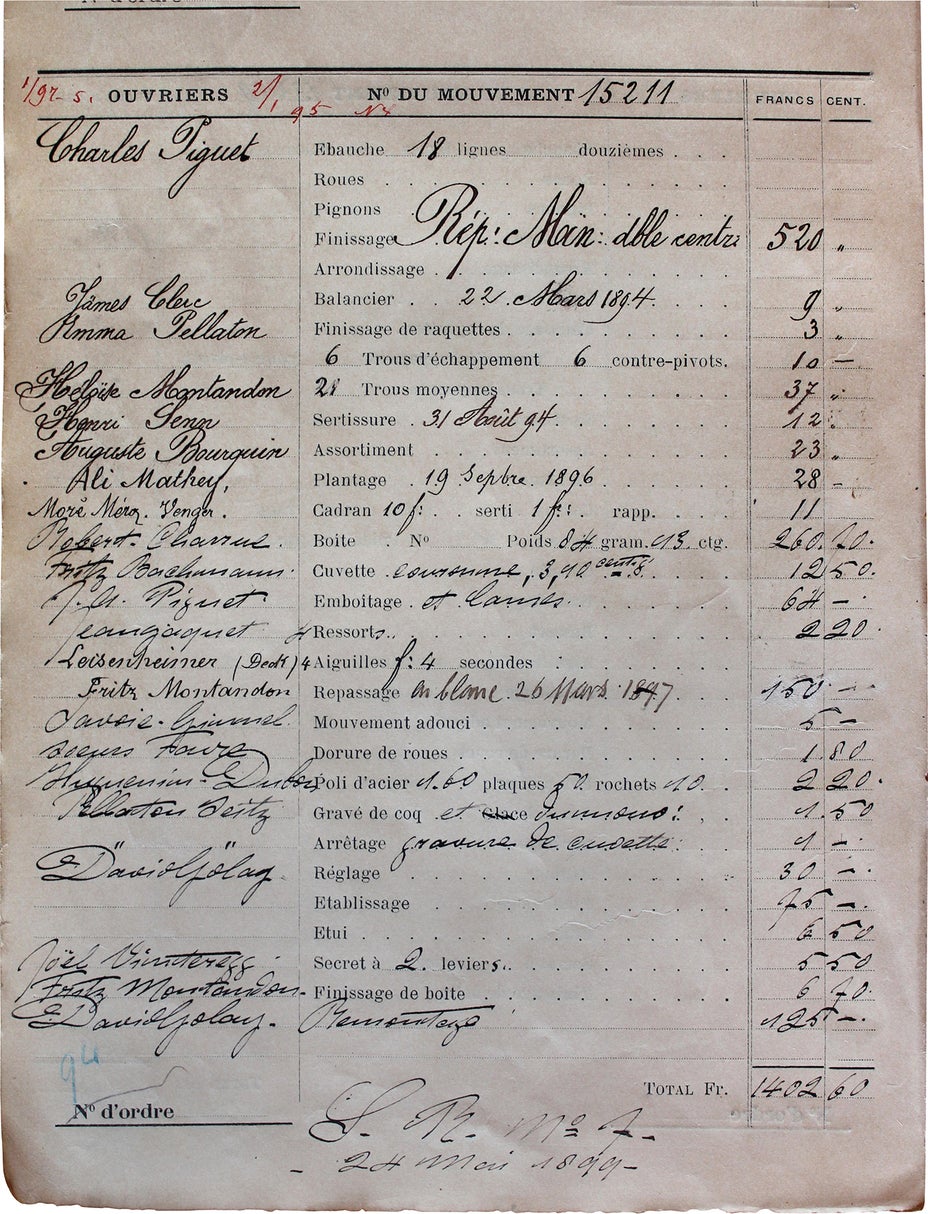 N° d'ordre
OUVRIERS N° DU MOUVEMENT 15211 FRANCS CENT.
Charles Piguet Ebauche 18 lignes douzièmes
Roues
Pignons
Finissage Rép: Man: dble centre 520 "
Arrondissage
James Clerc Balancier 22 Mars 1894. 9 "
Emma Pellaton Finissage de raquettes 3 "
6 Trous d'échappement 6 contre-pivots. 10 —
Héloïse Montandon 28 Trous moyennes 37 "
Henri Senn Sertissure 31 Août 94. 12 "
Auguste Bourquin Assortiment 23 "
Ali Mathey, Plantage 19 Sepbre. 1896 28 -
Méroz. Venger. Cadran 10 f: serti 1 f: rapp. 11
Robert. Charrue Boite N° Poids 84 gram. 13. ctg. 260. 70.
Fritz Bachmann. Cuvette couronne, 3,10 12 50.
Piguet Emboitage et 64 -
Jeanjaquet 4 Ressorts 2 20
Leisenheimer 4 Aiguilles f: 4 secondes
Fritz Montandon Repassage en blanc 26 Mars 1897. 150 -
Savoie- Mouvement adouci 5 -
Soeurs Favre Dorure de roues 1 80
Huguenin- Dubois Poli d'acier 1.60 plaques 50. rochets 10. 2 20.
Pellaton Seitz Gravé de coq et Glace 1. 50
Arrêtage gravure de cuvette 1 -
E David Golay Réglage 30 -.
Etablissage 75 -.
Etui 6 50
Joël Secret à 2. leviers. 5 50
Fritz Montandon. Finissage de boîte 6 70.
E David Golay. Remontage 125 -.
94
TOTAL Fr. 1402 60
N° d'ordre
S. R. Mo 7-
- 24 Mai 1899-